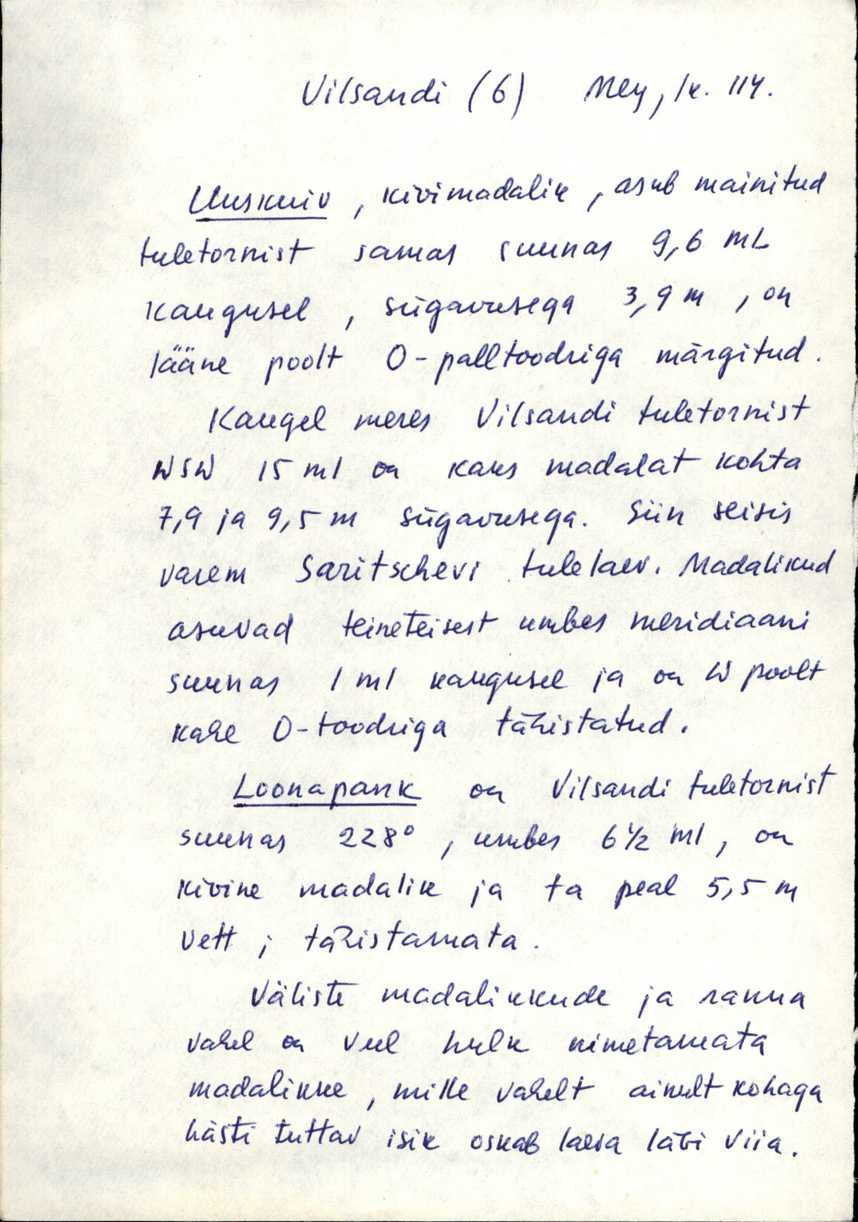 Vilsandi (6) Mey, lk. 114.
Uuskuiv, kivimadalik, asub mainitud
tuletornist samas suunas 9,6 mL
kaugusel, sügavusega 3,9 m, on
lääne poolt O-palltoodriga märgitud.
Kaugel meres Vilsandi tuletornist
WSW 15 ml on kaks madalat kohta
7,9 ja 9,5 m sügavusega. Siin seisis
varem Saritschevi tulelaev. Madalikud
asuvad teineteisest umbes meridiaani
suunas 1 ml kaugusel ja on W poolt
kahe O-toodriga tähistatud.
Loonapank on Vilsandi tuletornist
suunas 228°, umbes 6 1/2 ml, on
kivine madalik ja ta peal 5,5 m
vett; tähistamata.
Väliste madalikkude ja ranna
vahel on veel hulk nimetamata
madalikke, mille vahelt ainult kohaga
hästi tuttav isik oskab laeva läbi viia.